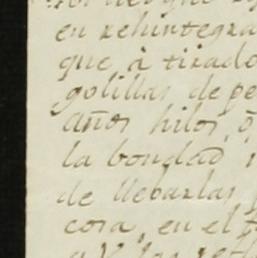 en rehintegra
que à tirado
golillas de pe
años hilos, o
la bondad
de llebarlas
cora, en el